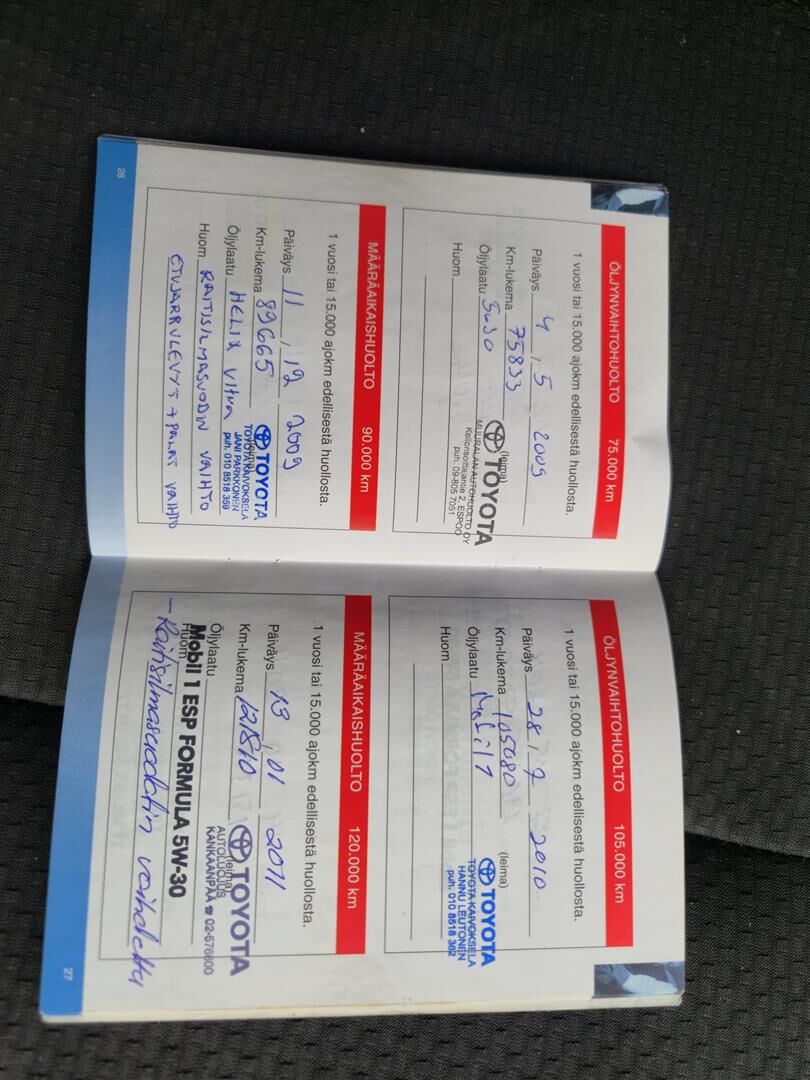 ÖLJYNVAIHTOHUOLTO 75.000 km
1 vuosi tai 15.000 ajokm edellisestä huollosta.
Päiväys 4 . 5 2009
Km-lukema 75833
(leima)
Öljylaatu 5w30
TOYOTA
MUURALAN AUTOHUOLTO OY
Kellonsoittajantie 2, ESPOO
puh. 09-805 7051
Huom
MÄÄRÄAIKAISHUOLTO 90.000 km
1 vuosi tai 15.000 ajokm edellisestä huollosta.
Päiväys 11 . 12 2009
Km-lukema 89665
(leima)
Öljylaatu HELIX Ultra
TOYOTA
TOYOTA KAIVOKSELA
JANI PARKKONEN
puh. 010 8518 359
Huom RAITISILMASUODIN VAIHTO
ETUJARRULEVYT + PALAT VAIHTO
26
ÖLJYNVAIHTOHUOLTO 105.000 km
1 vuosi tai 15.000 ajokm edellisestä huollosta.
Päiväys 28 . 7 2010
Km-lukema 105080
(leima)
Öljylaatu Mobil 1
TOYOTA
TOYOTA KAIVOKSELA
HANNU LEUTONEN
puh. 010 8518 362
Huom
MÄÄRÄAIKAISHUOLTO 120.000 km
1 vuosi tai 15.000 ajokm edellisestä huollosta.
Päiväys 13 . 01 2011
Km-lukema 121510
(leima)
Öljylaatu
TOYOTA
AUTOLUOJUS
KANKAANPÄÄ ☎ 02-576600
Huom
Mobil 1 ESP FORMULA 5W-30
- Raitisilmasuodatin vaihdettu
27